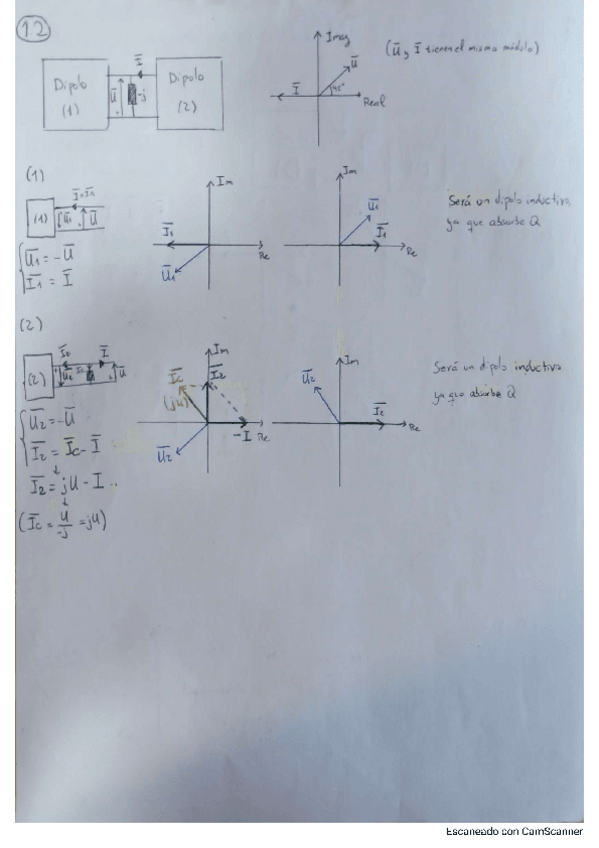 12
Dipolo
(1)
Ū
-j
Ī
Dipolo
(2)
Imag
Ū
Ī
45°
Real
(Ū y Ī tienen el mismo módulo)
(1)
Ī=Ī1
(1)
Ū1
Ū
Ū1 = -Ū
Ī1 = Ī
Im
Ī1
Re
Ū1
Im
Ū1
Ī1
Re
Será un dipolo inductivo
ya que absorbe Q
(2)
Ī
(2)
Ū2
Ū
Ū2 = -Ū
Ī2 = Īc - Ī
Ī2 = jU - I
(Īc = U/-j = jU)
Im
Īc
(jU)
Ī2
-I
Re
Ū2
Im
Ū2
Ī2
Re
Será un dipolo inductivo
ya que absorbe Q
Escaneado con CamScanner